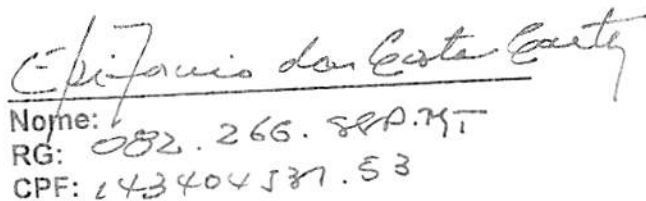 Epifanio da Costa
Nome:
RG: 082.266.SSP.MT
CPF: 143404531.53